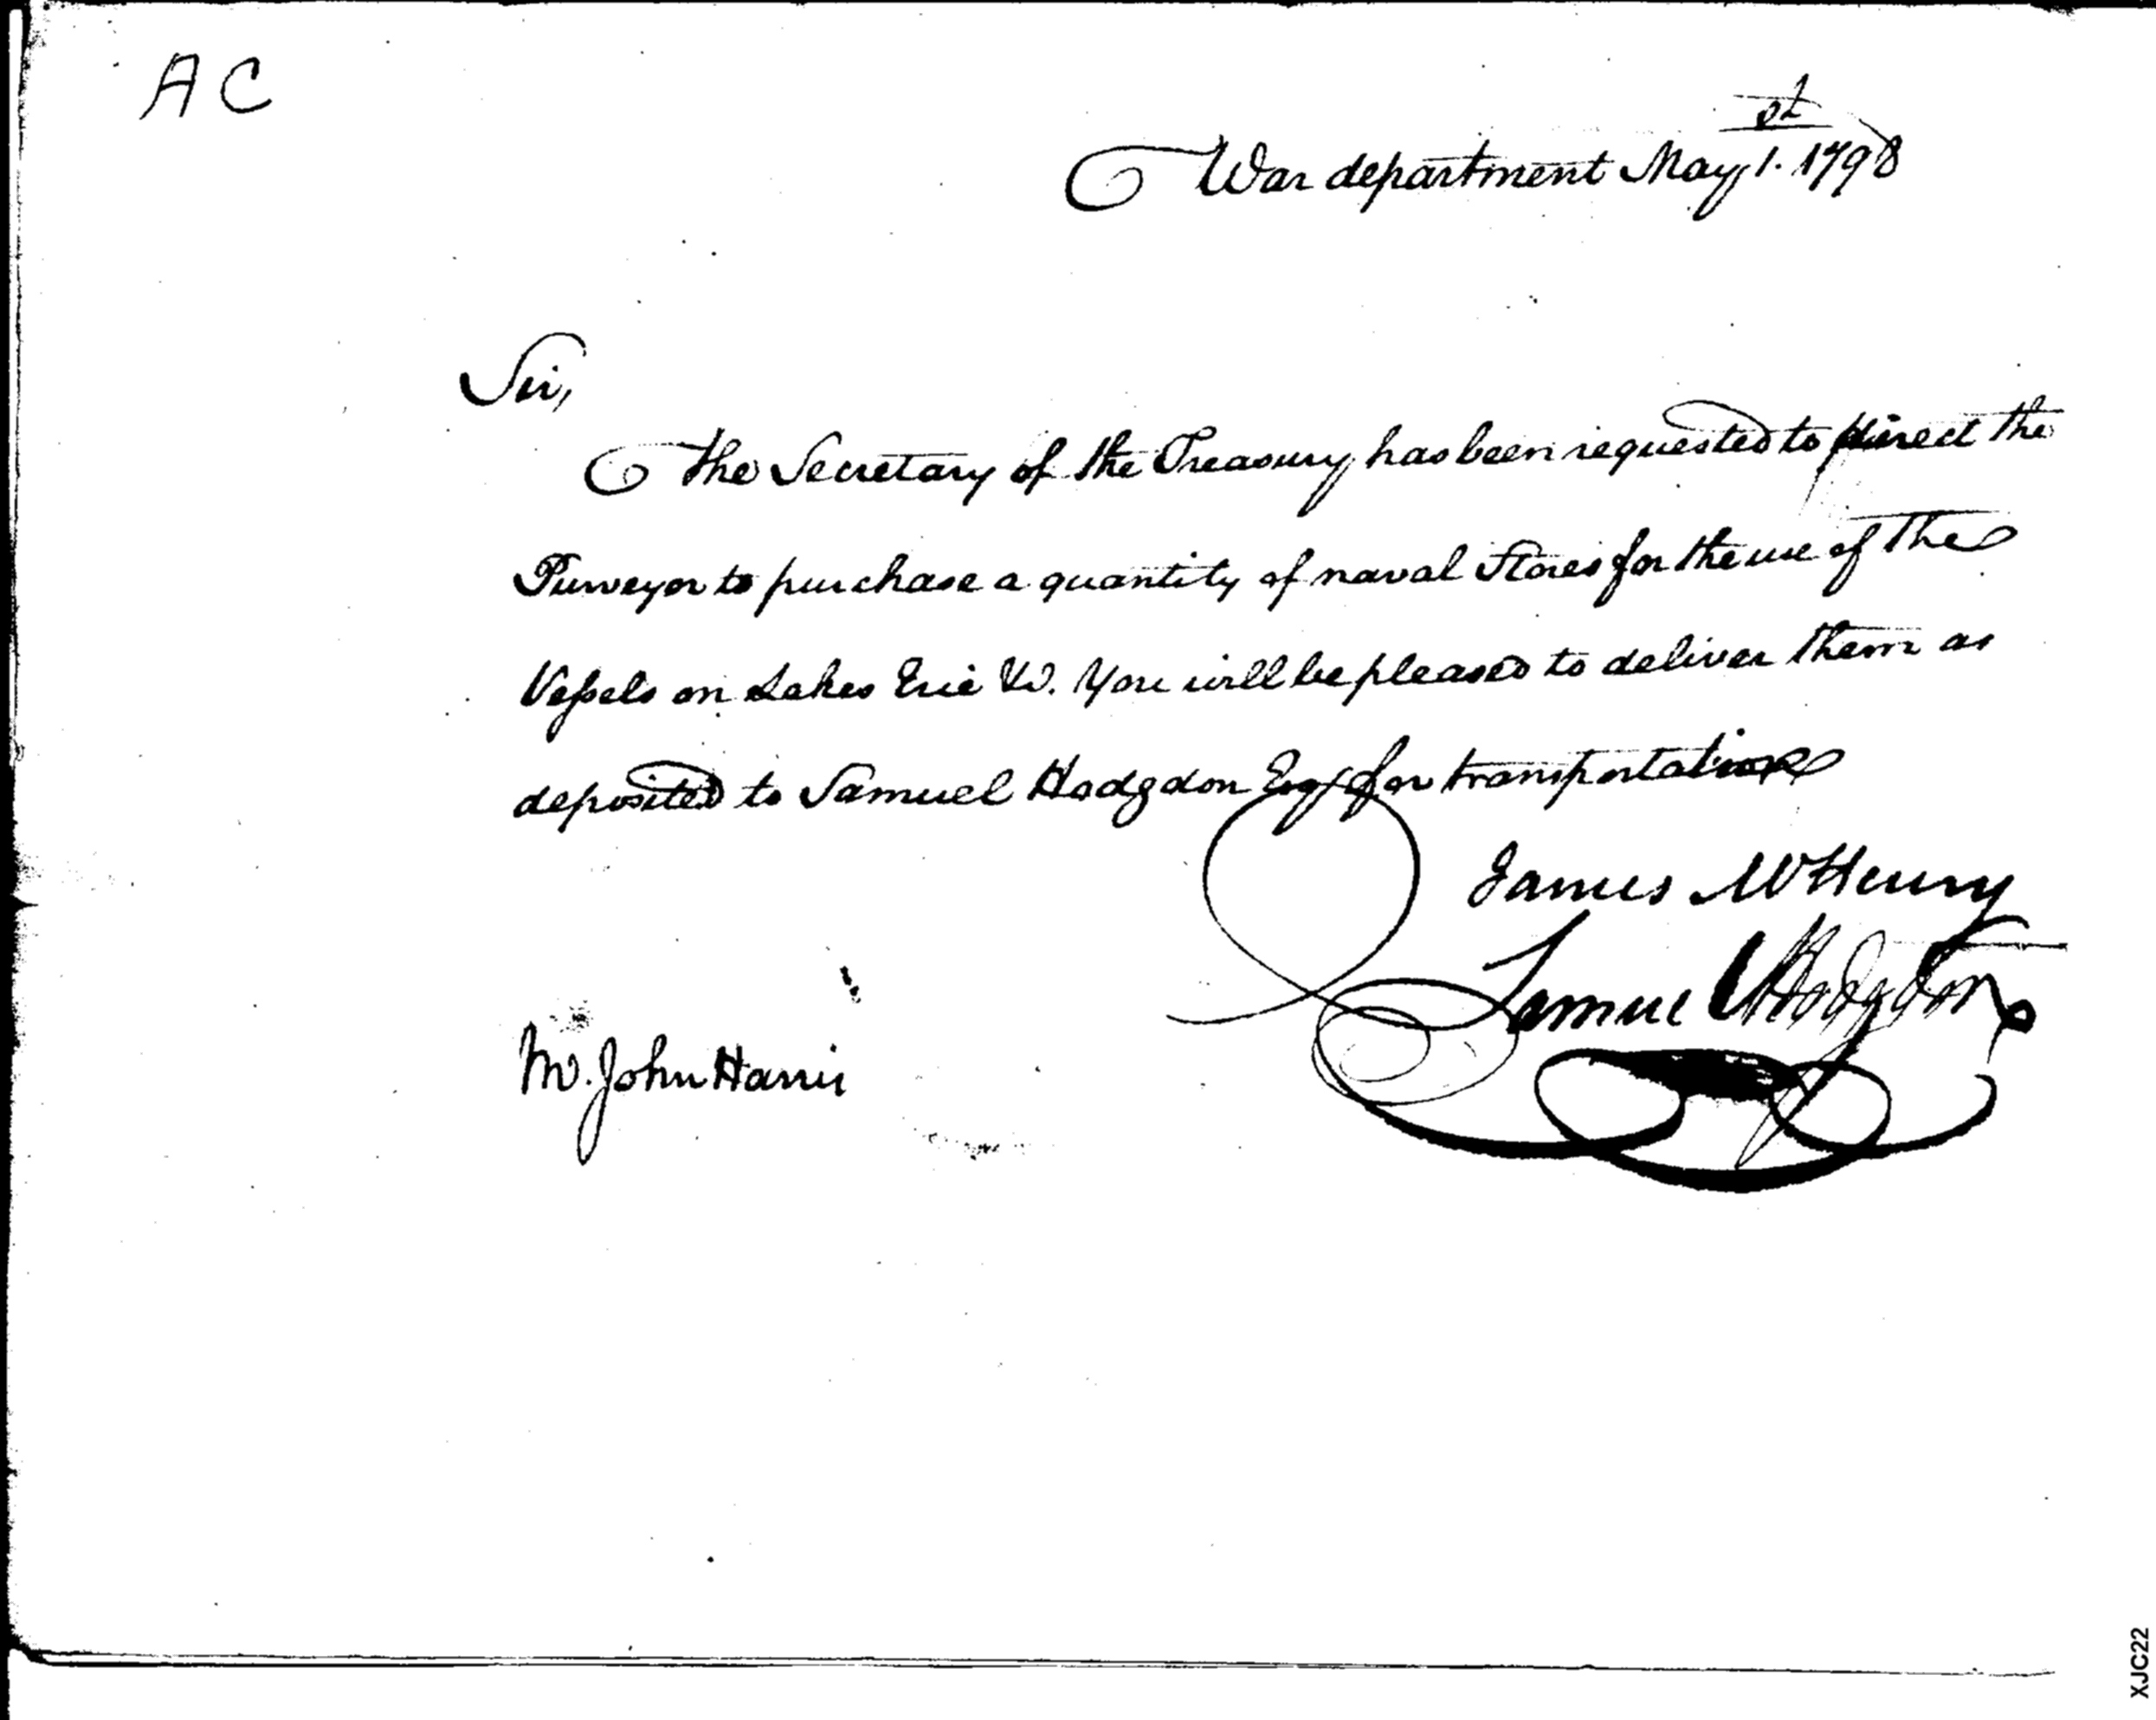 A C
War department May 1st. 1798
Sir,
The Secretary of the Treasury has been requested to direct the
Purveyor to purchase a quantity of naval Stores for the use of the
Vessels on Lakes Erie &c. You will be pleased to deliver them as
deposited to Samuel Hodgdon Esq for transportation
James McHenry
Samuel Hodgdon
Mr. John Harris
XJC22